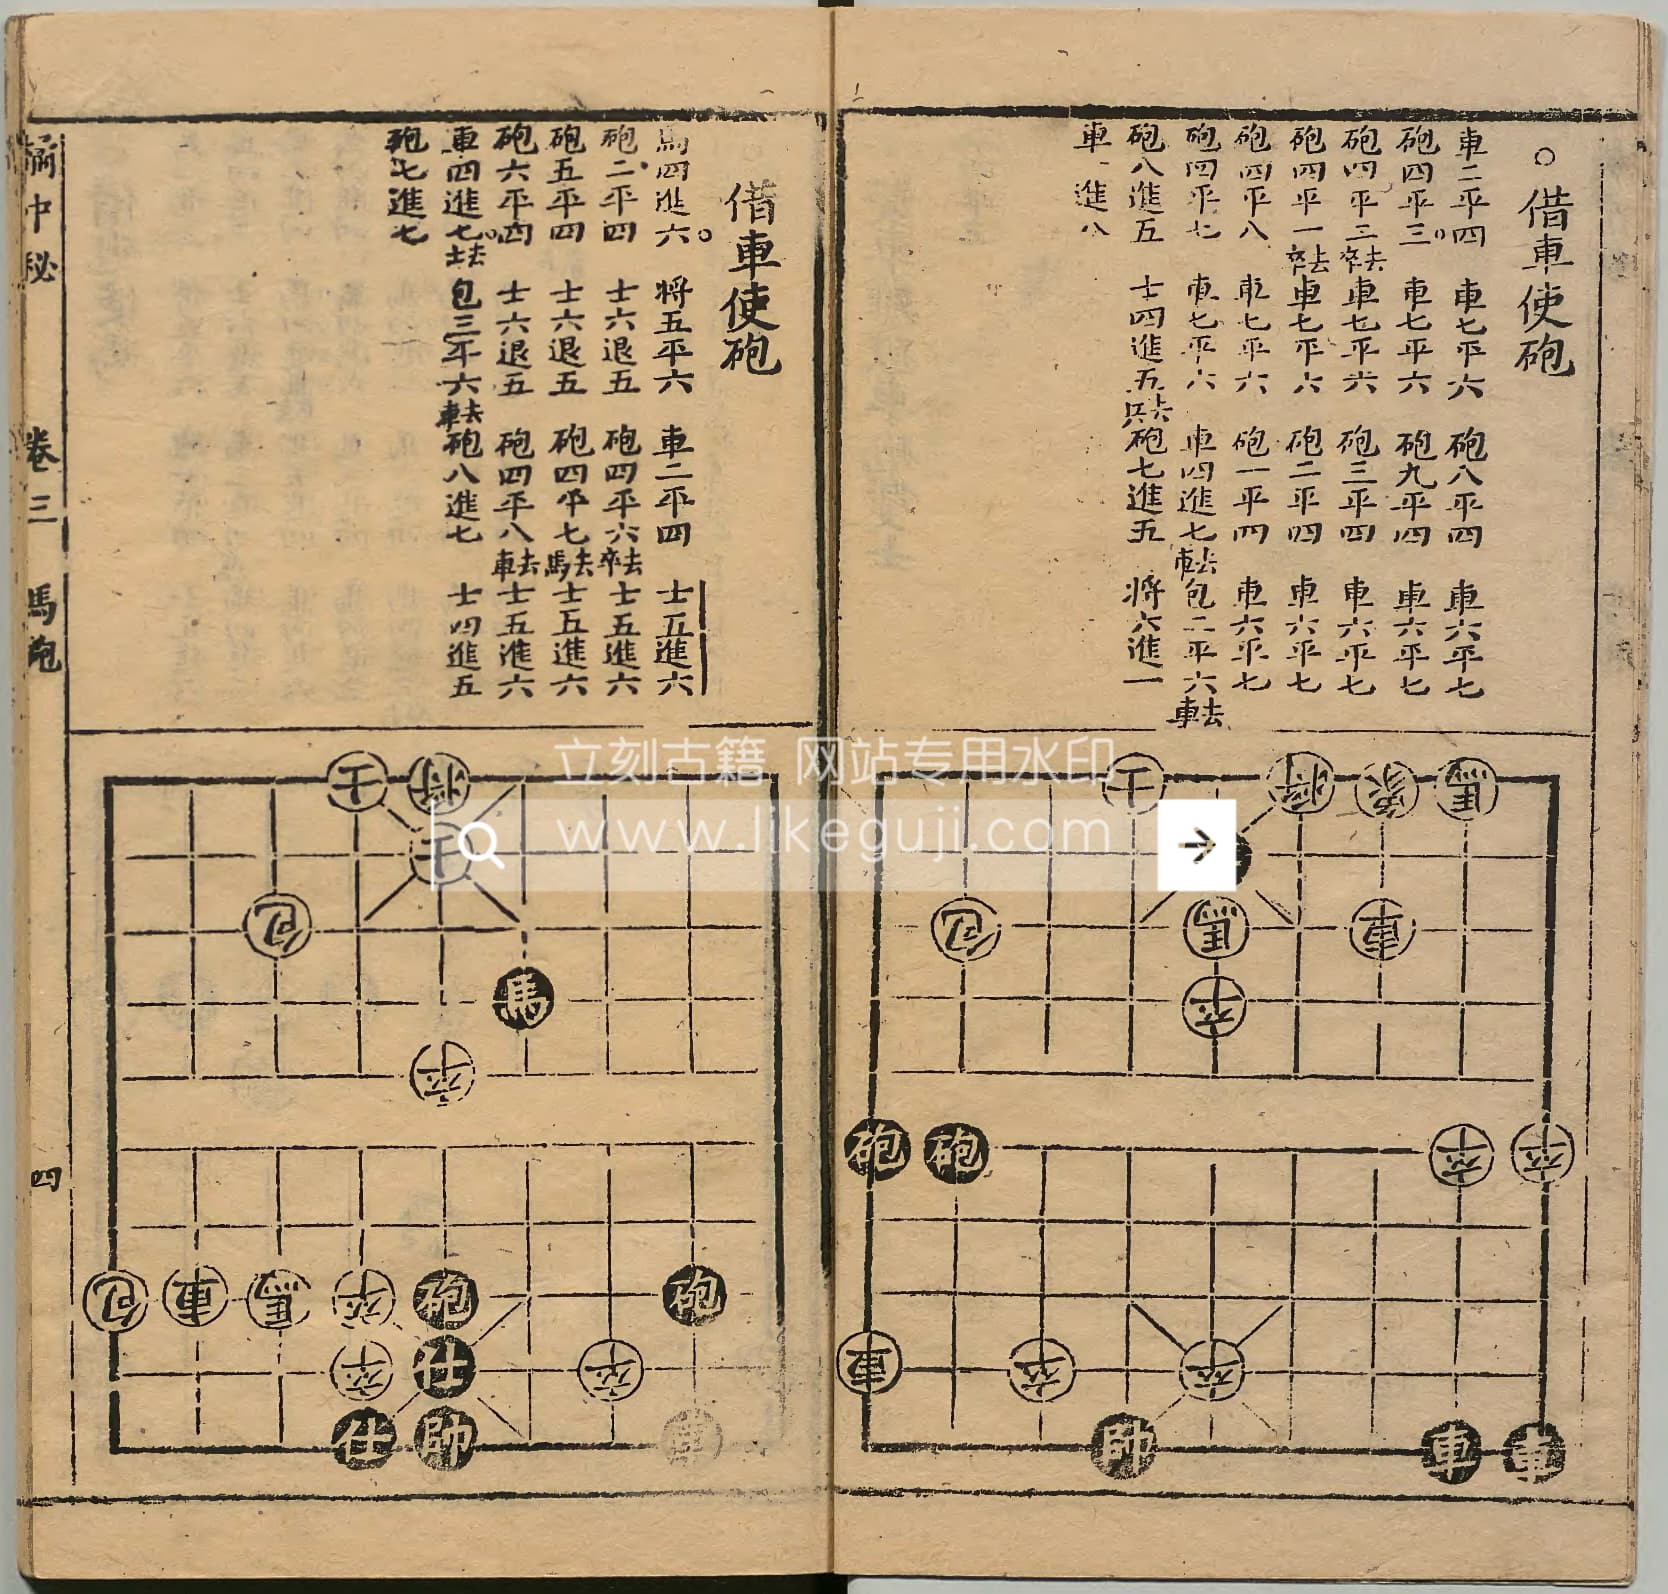 ○借車使砲
車二平四 車七平六 砲八平四 車六平七
砲四平三 車七平六 砲九平四 車六平七
砲四平二去卒 車七平六 砲三平四 車六平七
砲四平一去卒 車七平六 砲二平四 車六平七
砲四平八 車七平六 砲一平四 車六平七
砲四平七 車七平六 車四進七去車 包二平六去車
砲八進五 士四進五去兵 砲七進五 將六進一
車一進八
士 將 象 馬
包 馬 車
卒
砲 砲 卒 卒
車 卒 卒
帥 車 車
借車使砲
馬四進六 將五平六 車二平四 士五進六
砲二平四 士六退五 砲四平六去卒 士五進六
砲五平四 士六退五 砲四平七去馬 士五進六
砲六平四 士六退五 砲四平八去車 士五進六
車四進七去士 包三平六去車 砲八進七 士四進五
砲七進七
士 將
士
包
馬
卒
包 車 馬 卒 砲 砲
卒 仕 卒
仕 帥 車
橘中秘 卷三 馬砲 四
立刻古籍 网站专用水印
www.likeguji.com